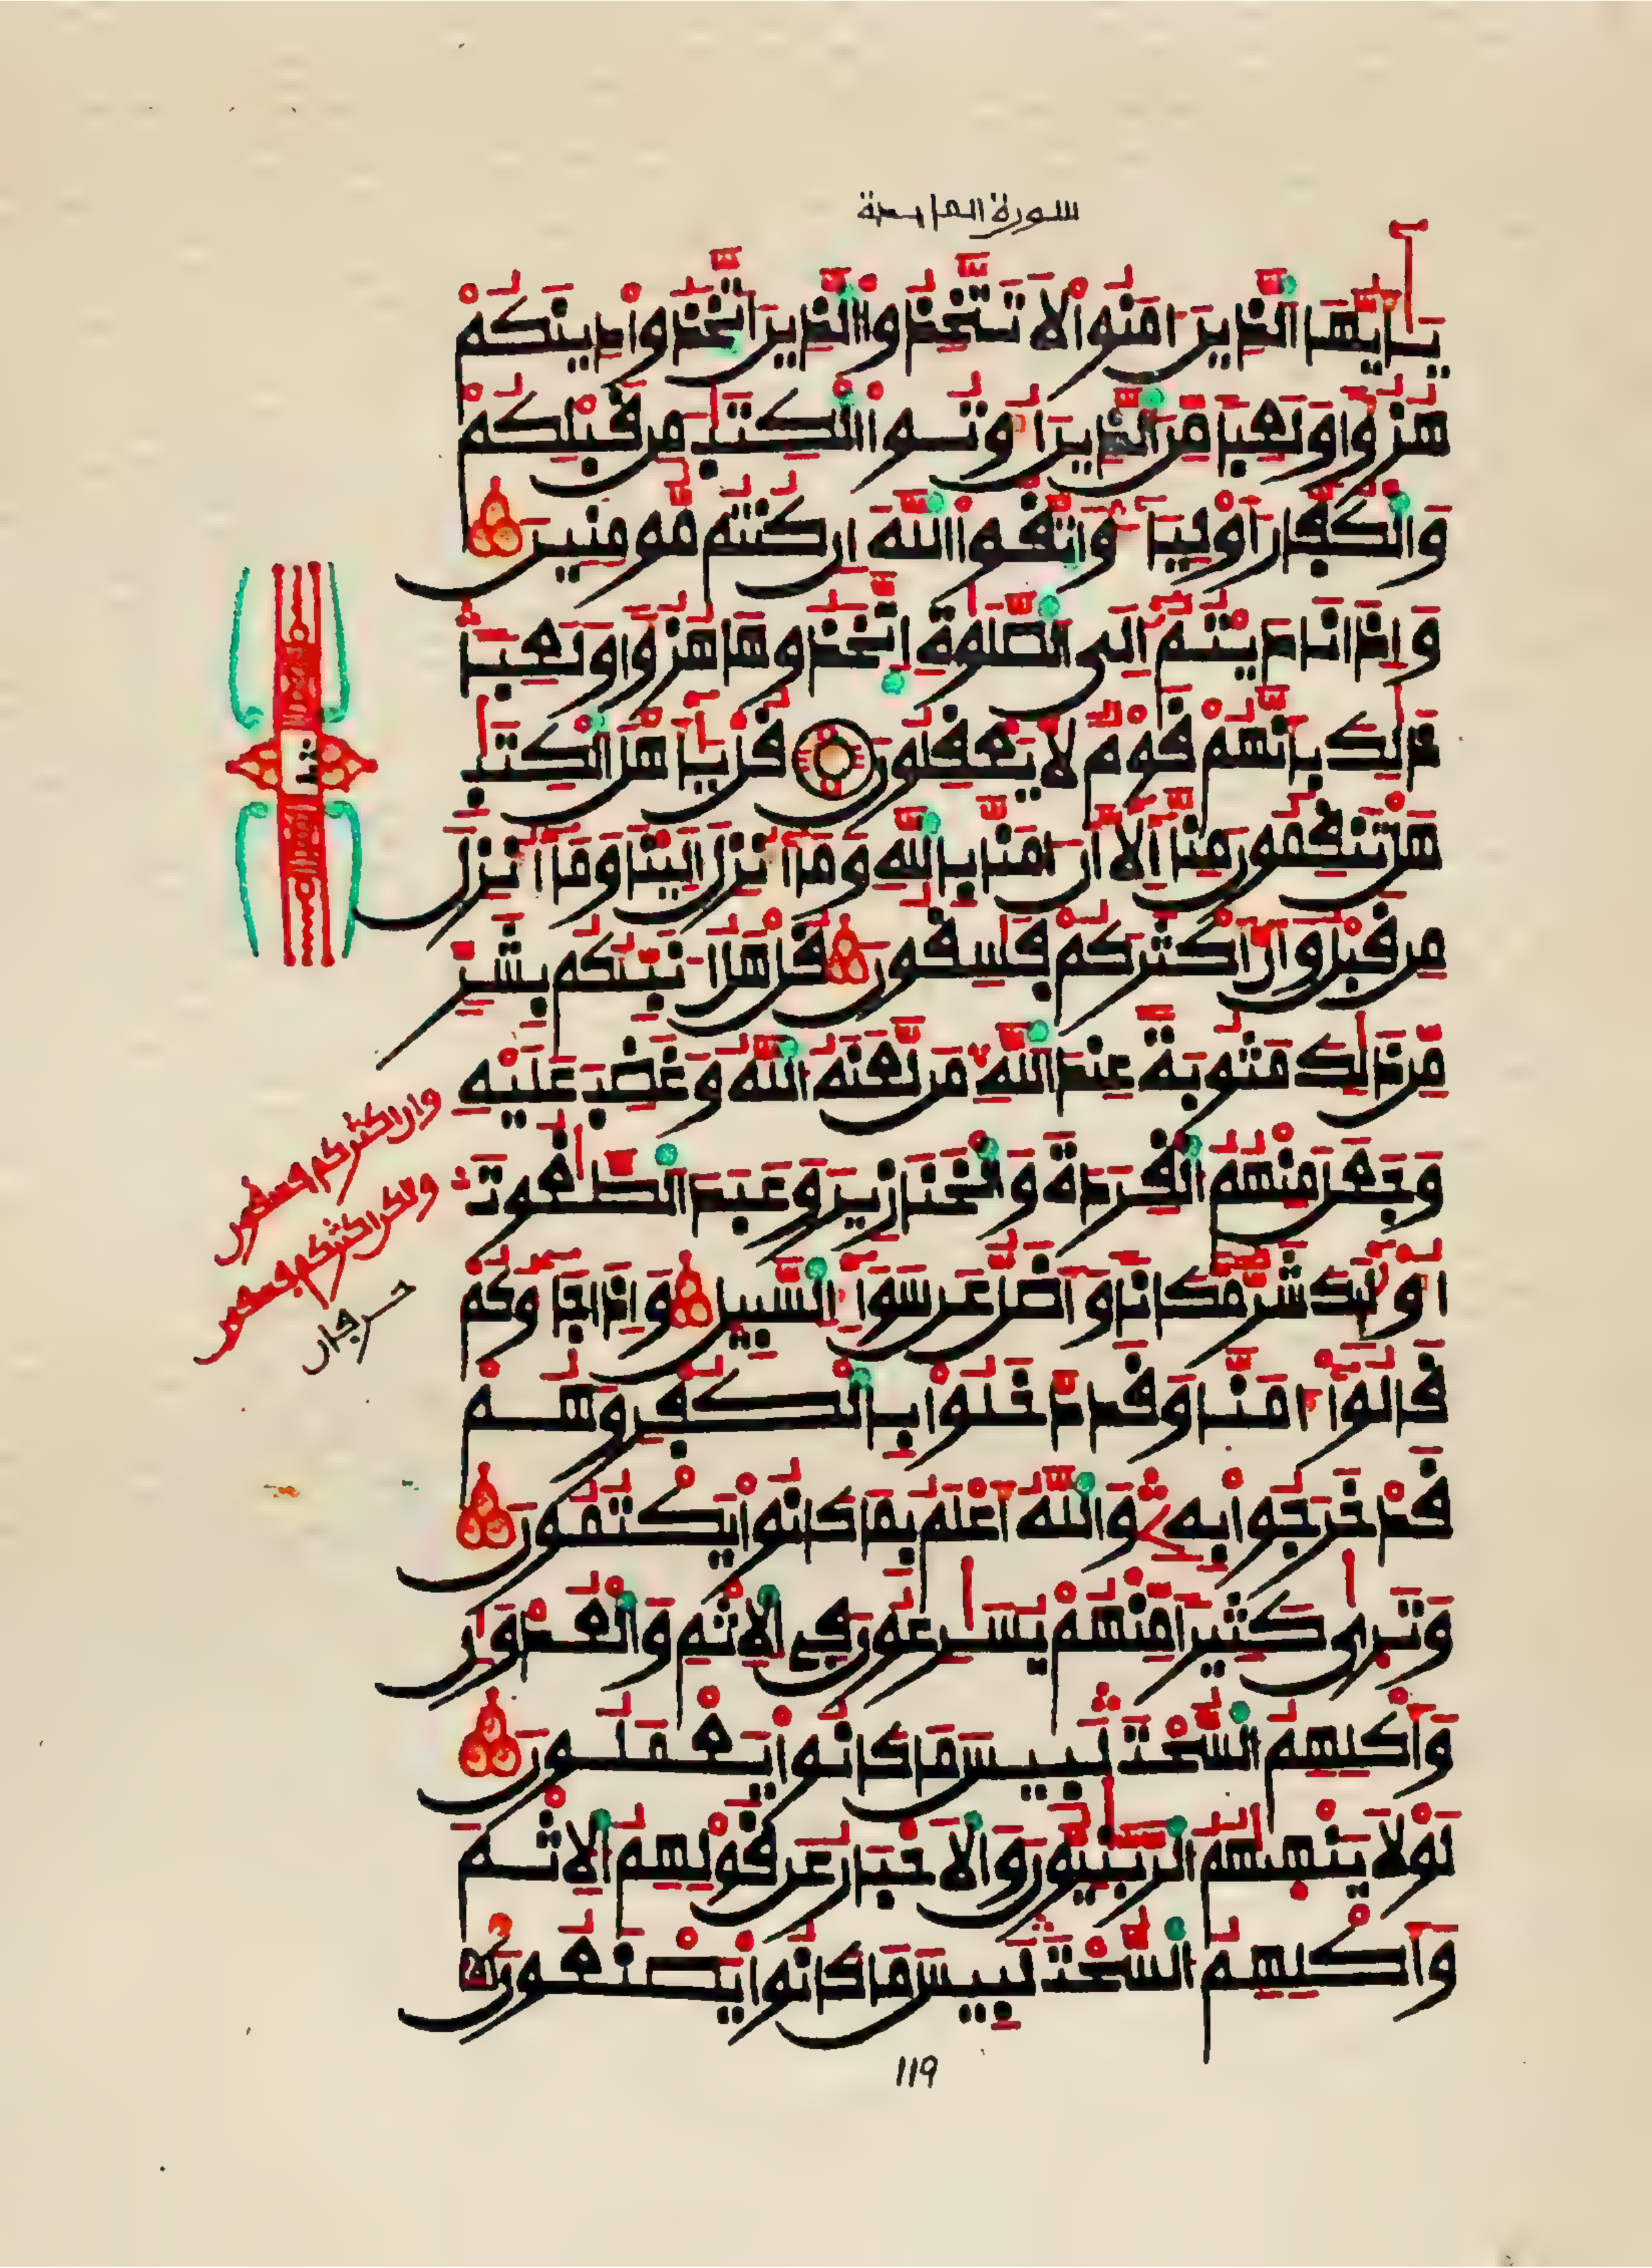 سورة المايدة
يَٰٓأَيُّهَا الَّذِينَ ءَامَنُواْ لَا تَتَّخِذُواْ الَّذِينَ اَتَّخَذُواْ دِينَكُمْ
هُزُؤاً وَلَعِباً مِّنَ الَّذِينَ أُوتُواْ الْكِتَٰبَ مِن قَبْلِكُمْ
وَالْكُفَّارَ أَوْلِيَآءَ وَاتَّقُواْ اللَّهَ إِن كُنتُم مُّومِنِينَ
وَإِذَا نَادَيْتُمُ إِلَى الصَّلَوٰةِ اِتَّخَذُوهَا هُزُؤاً وَلَعِباً
ذَٰلِكَ بِأَنَّهُمْ قَوْمٌ لَّا يَعْقِلُونَ قُلْ يَٰٓأَهْلَ الْكِتَٰبِ
هَلْ تَنقِمُونَ مِنَّآ إِلَّآ أَنَ ـامَنَّا بِاللَّهِ وَمَآ أُنزِلَ إِلَيْنَا وَمَآ أُنزِلَ
مِن قَبْلُ وَأَنَّ أَكْثَرَكُمْ فَٰسِقُونَ قُلْ هَلُ ا۟نَبِّئُكُم بِشَرٍّ
مِّن ذَٰلِكَ مَثُوبَةً عِندَ اللَّهِ مَن لَّعَنَهُ اللَّهُ وَغَضِبَ عَلَيْهِ
وَجَعَلَ مِنْهُمُ الْقِرَدَةَ وَالْخَنَازِيرَ وَعَبَدَ الطَّٰغُوتَ
أُوْلَٰٓئِكَ شَرٌّ مَّكَاناً وَأَضَلُّ عَن سَوَآءِ السَّبِيلِ وَإِذَا جَآءُوكُمْ
قَالُوٓاْ ءَامَنَّا وَقَد دَّخَلُواْ بِالْكُفْرِ وَهُمْ
قَدْ خَرَجُواْ بِهِۦ وَاللَّهُ أَعْلَمُ بِمَا كَانُواْ يَكْتُمُونَ
وَتَرَىٰ كَثِيراً مِّنْهُمْ يُسَٰرِعُونَ فِي الْإِثْمِ وَالْعُدْوَٰنِ
وَأَكْلِهِمُ السُّحْتَ لَبِيسَ مَا كَانُواْ يَعْمَلُونَ
لَوْلَا يَنْهَىٰهُمُ الرَّبَّٰنِيُّونَ وَالْأَحْبَارُ عَن قَوْلِهِمُ الْإِثْمَ
وَأَكْلِهِمُ السُّحْتَ لَبِيسَ مَا كَانُواْ يَصْنَعُونَ
وان اكثركم فسقون
ولكن اكثركم فسقون
119